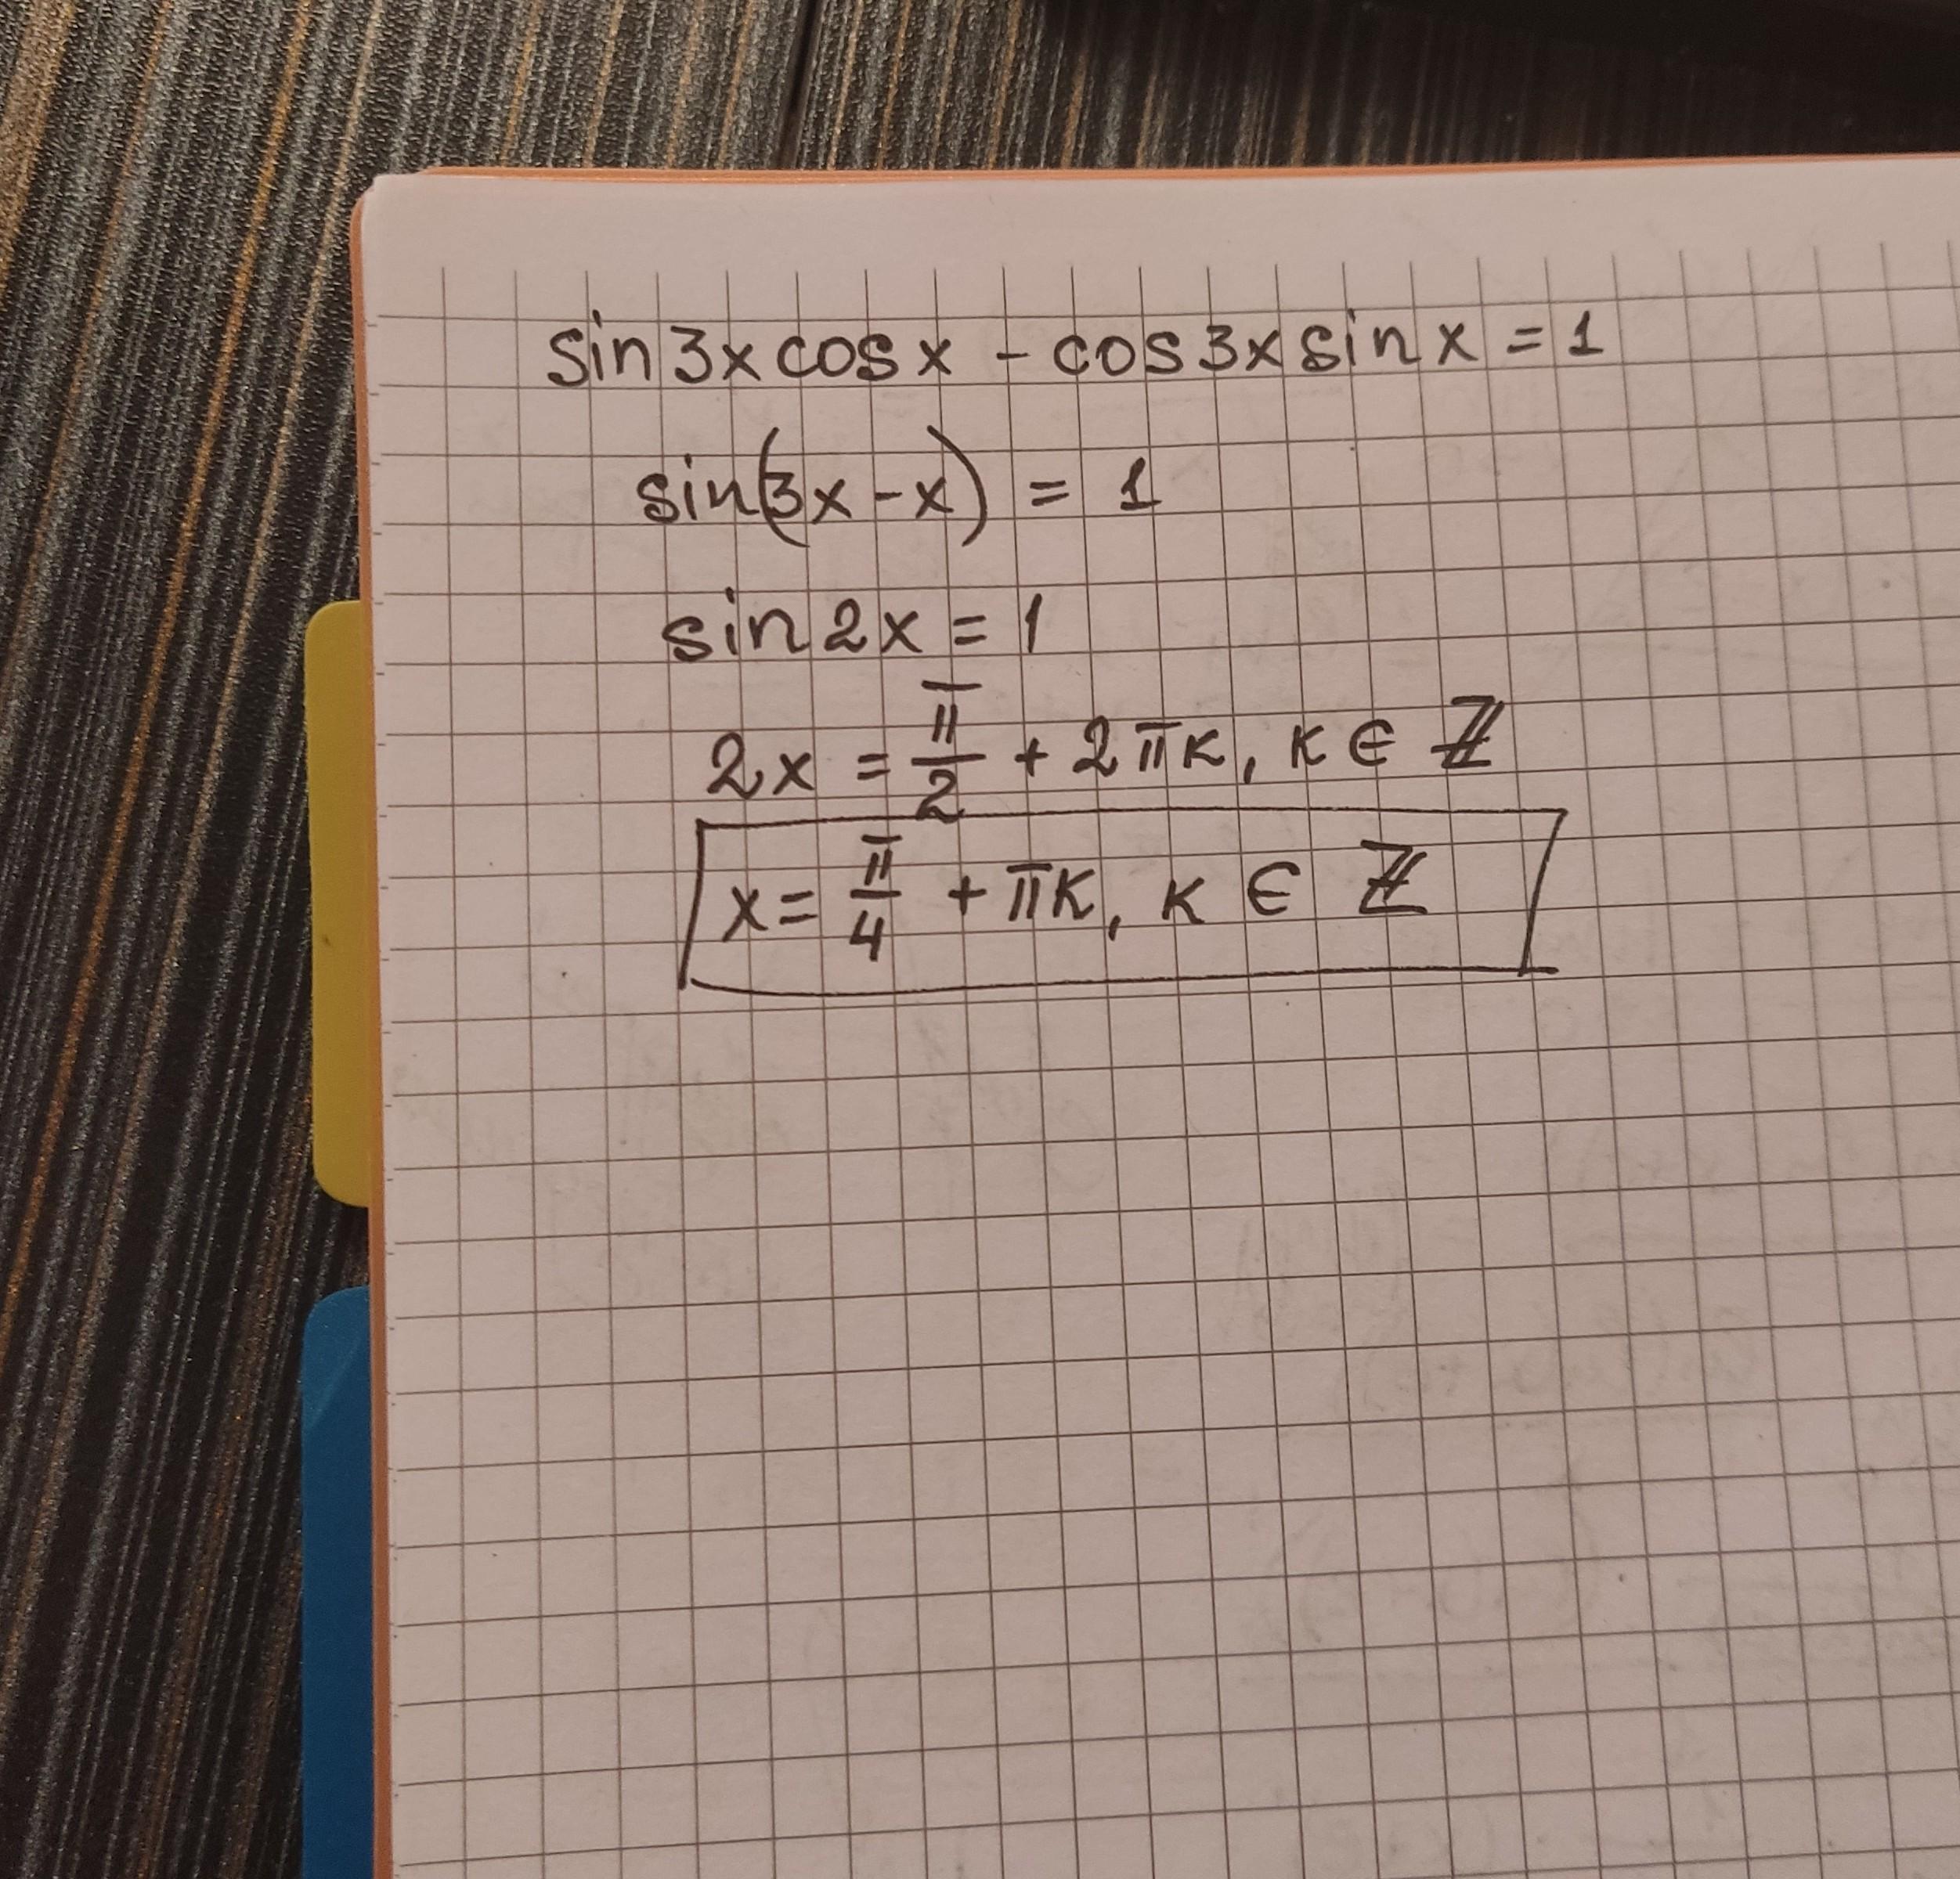 sin3xcosx - cos3xsinx = 1
sin(3x-x) = 1
sin2x = 1
2x = π/2 + 2πk, k ∈ ℤ
x = π/4 + πk, k ∈ ℤ